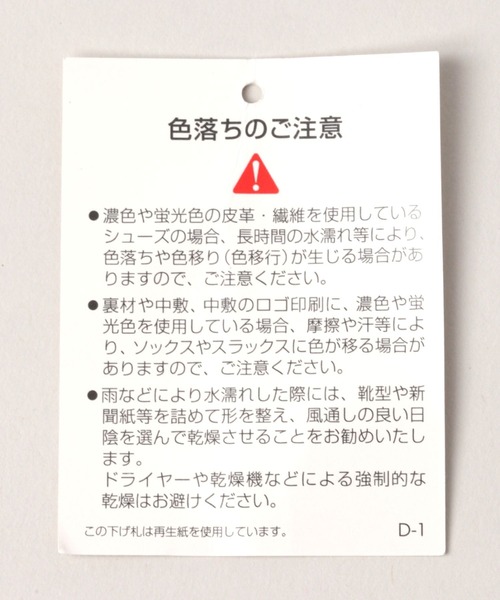 色落ちのご注意
●濃色や蛍光色の皮革・繊維を使用している
シューズの場合、長時間の水濡れ等により、
色落ちや色移り(色移行)が生じる場合があ
りますので、ご注意ください。
●裏材や中敷、中敷のロゴ印刷に、濃色や蛍
光色を使用している場合、摩擦や汗等によ
り、ソックスやスラックスに色が移る場合が
ありますので、ご注意ください。
●雨などにより水濡れした際には、靴型や新
聞紙等を詰めて形を整え、風通しの良い日
陰を選んで乾燥させることをお勧めいたし
ます。
ドライヤーや乾燥機などによる強制的な
乾燥はお避けください。
この下げ札は再生紙を使用しています。
D-1